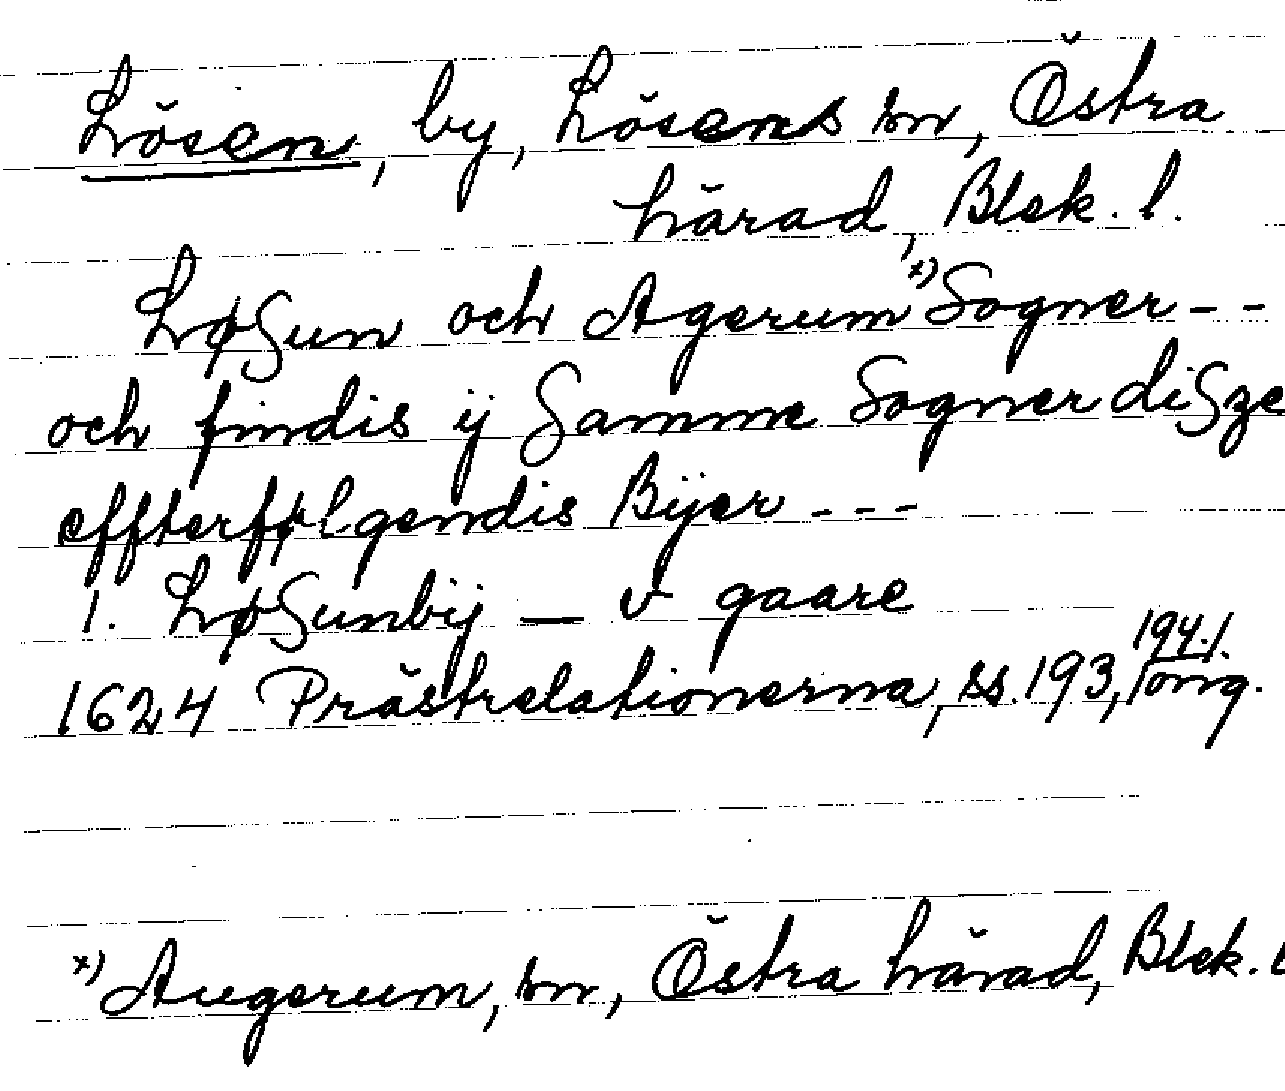 Lösen, by, Lösens sn, Östra
härad, Blek. l.
LøSun och Agerum x) Sogner - -
och findis ij Samme Sogner diSze
effterfølgendis Bÿer - - -
1. LøSunbÿ — v gaare
1624 Prästrelationerna, ss. 193, 194. l. orig.
x) Augerum, sn, Östra härad, Blek. l